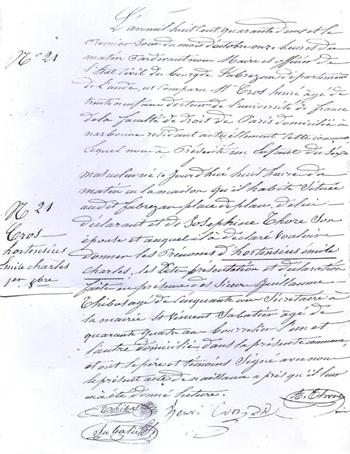 N° 21
L'an mil huit cent quarante deux et le
premier jour du mois d'octobre onze heures du
matin Pardevant nous Maire et officier de
l'Etat Civil du bourg de Fabrezan département
de l'aude, est comparu Mr Cros henri âgé de
trente neuf ans docteur de l'université de france
de la faculté de droit de Paris domicilié à
narbonne résidant actuellement cette commune
lequel nous a Présenté un Enfant du Sexe
masculin né ce jourd'hui huit heures du
matin en la maison qu'il habite Située
audit fabrezan place de place, de lui
déclarant et de Josephine Thore Son
épouse et auquel il a déclaré vouloir
donner les Prénoms d'hortensius émile
charles, les dites présentation et déclaration
faite en présence de Sieur Guillaume
agé de cinquante ans Secrétaire à
la mairie et Vincent Sabatier âgé de
quarante quatre ans Cordonnier l'un et
l'autre domiciliés dans la présente commune,
et ont le père et témoins Signé avec nous
le présent acte de naissance après qu'il leur
en a été donné lecture.
N° 21
Cros
hortensius
émile charles
1er 8bre
henri Cros
Sabatier